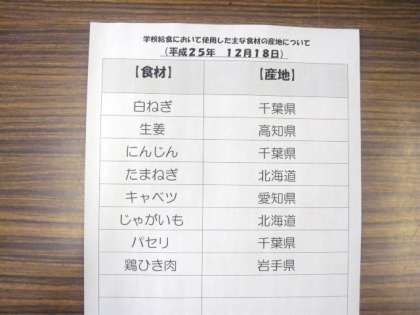 学校給食において使用した主な食材の産地について
（平成25年　12月18日）
【食材】　【産地】
白ねぎ　千葉県
生姜　高知県
にんじん　千葉県
たまねぎ　北海道
キャベツ　愛知県
じゃがいも　北海道
パセリ　千葉県
鶏ひき肉　岩手県